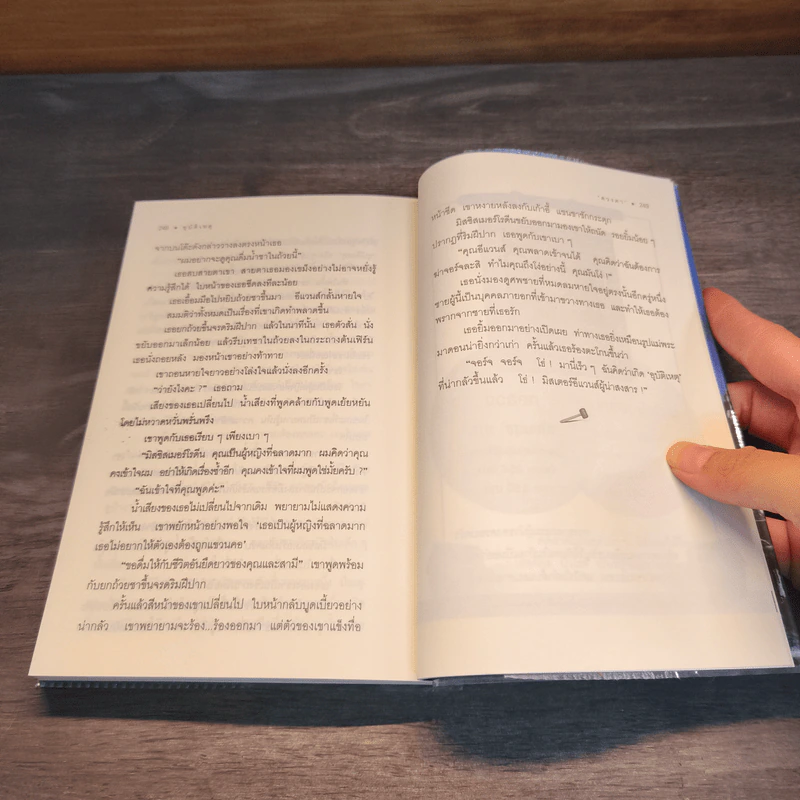 ๏ อุบัติเหตุ
จากบนโต๊ะดังกล่าววางลงตรงหน้าเธอ
“ผมอยากจะดูคุณดื่มน้ำชาในถ้วยนี้”
เธอสบสายตาเขา สายตาเธอมองเขม็งอย่างไม่อาจหยั่งรู้
ความรู้สึกได้ ใบหน้าของเธอซีดลงทีละน้อย
เธอเอื้อมมือไปหยิบถ้วยชาขึ้นมา อีแวนส์กลั้นหายใจ
สมมติว่าทั้งหมดเป็นเรื่องที่เขาเกิดทำพลาดขึ้น
เธอยกถ้วยขึ้นจรดริมฝีปาก แล้วในนาทีนั้น เธอตัวสั่น นั่ง
ขยับออกมาเล็กน้อย แล้วรีบเทชาในถ้วยลงในกระถางต้นเฟิร์น
เธอนั่งถอยหลัง มองหน้าเขาอย่างท้าทาย
เขาถอนหายใจยาวอย่างโล่งใจแล้วนั่งลงอีกครั้ง
“ว่ายังไงคะ ?” เธอถาม
เสียงของเธอเปลี่ยนไป น้ำเสียงที่พูดคล้ายกับพูดเย้ยหยัน
โดยไม่หวาดหวั่นพรั่นพรึง
เขาพูดกับเธอเรียบ ๆ เพียงเบา ๆ
“มิสซิสเมอร์โรดีน คุณเป็นผู้หญิงที่ฉลาดมาก ผมคิดว่าคุณ
คงเข้าใจผม อย่าให้เกิดเรื่องซ้ำอีก คุณคงเข้าใจที่ผมพูดใช่มั้ยครับ ?”
“ฉันเข้าใจที่คุณพูดค่ะ”
น้ำเสียงของเธอไม่เปลี่ยนไปจากเดิม พยายามไม่แสดงความ
รู้สึกให้เห็น เขาพยักหน้าอย่างพอใจ ‘เธอเป็นผู้หญิงที่ฉลาดมาก
เธอไม่อยากให้ตัวเองต้องถูกแขวนคอ’
“ขอดื่มให้กับชีวิตอันยืดยาวของคุณและสามี” เขาพูดพร้อม
กับยกถ้วยชาขึ้นจรดริมฝีปาก
ครั้นแล้วสีหน้าของเขาเปลี่ยนไป ใบหน้ากลับบูดเบี้ยวอย่าง
น่ากลัว เขาพยายามจะร้อง...ร้องออกมา แต่ตัวของเขาแข็งทื่อ
หน้าซีด เขาหงายหลังลงกับเก้าอี้ แขนขาชักกระตุก
มิสซิสเมอร์โรดีนขยับออกมามองเขาให้ถนัด รอยยิ้มน้อย ๆ
ปรากฏที่ริมฝีปาก เธอพูดกับเขาเบา ๆ
“คุณอีแวนส์ คุณพลาดเข้าจนได้ คุณคิดว่าฉันต้องการ
ฆ่าจอร์จละสิ ทำไมคุณถึงโง่อย่างนี้ คุณมันโง่ !”
เธอนั่งมองดูศพชายที่หมดลมหายใจอยู่ตรงนั้นอีกครู่หนึ่ง
ชายผู้นี้เป็นบุคคลภายอกที่เข้ามาขวางทางเธอ และทำให้เธอต้อง
พรากจากชายที่เธอรัก
เธอยิ้มออกมาอย่างเปิดเผย ท่าทางเธอยิ่งเหมือนรูปแม่พระ
มาดอนน่ายิ่งกว่าเก่า ครั้นแล้วเธอร้องตะโกนขึ้นว่า
“จอร์จ จอร์จ โธ่ ! มานี่เร็ว ๆ ฉันคิดว่าเกิด ‘อุบัติเหตุ’
ที่น่ากลัวขึ้นแล้ว โธ่ ! มิสเตอร์อีแวนส์ผู้น่าสงสาร !”